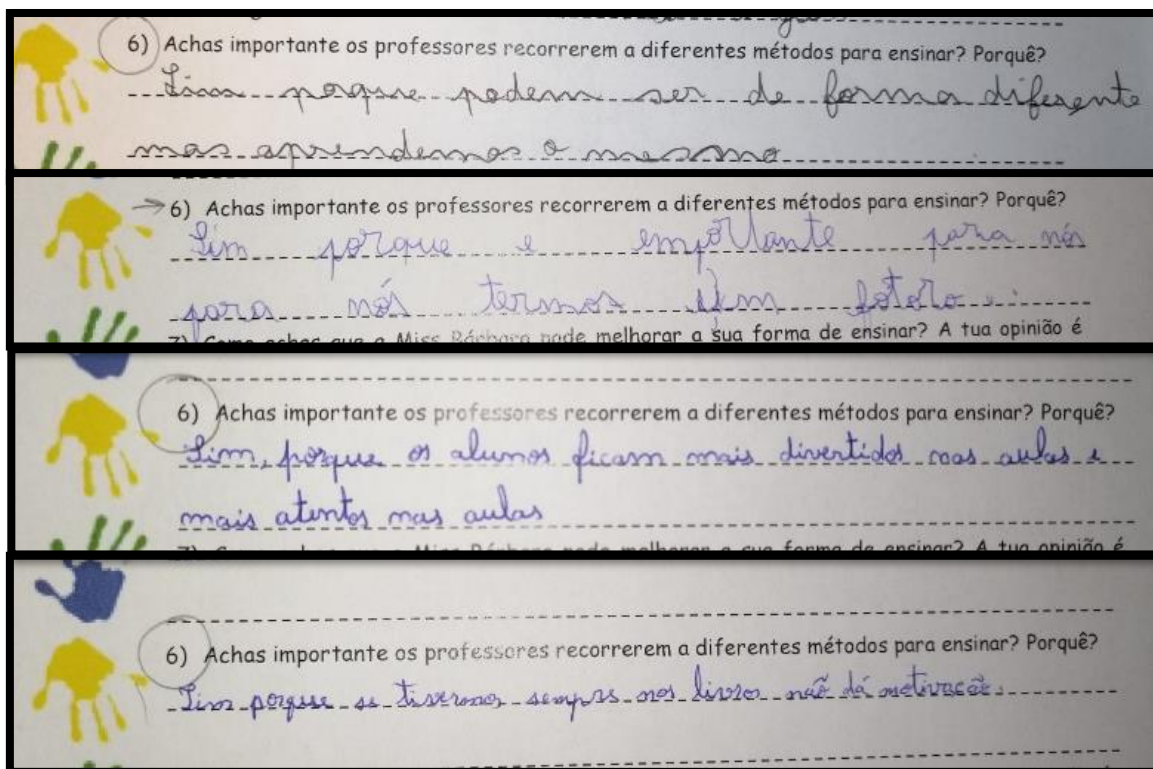 6) Achas importante os professores recorrerem a diferentes métodos para ensinar? Porquê?
Sim porque podem ser de forma diferente
mas aprendemos o mesmo
6) Achas importante os professores recorrerem a diferentes métodos para ensinar? Porquê?
Sim porque e emportante para nós
para nós termos um fotoro.
7) Como achas que a Miss Bárbara pode melhorar a sua forma de ensinar? A tua opinião é
6) Achas importante os professores recorrerem a diferentes métodos para ensinar? Porquê?
Sim, porque os alunos ficam mais divertidos nas aulas e
mais atentos nas aulas
7) Como achas que a Miss Bárbara pode melhorar a sua forma de ensinar? A tua opinião é
6) Achas importante os professores recorrerem a diferentes métodos para ensinar? Porquê?
Sim porque se tivermos sempre nos livros não dá motivação.